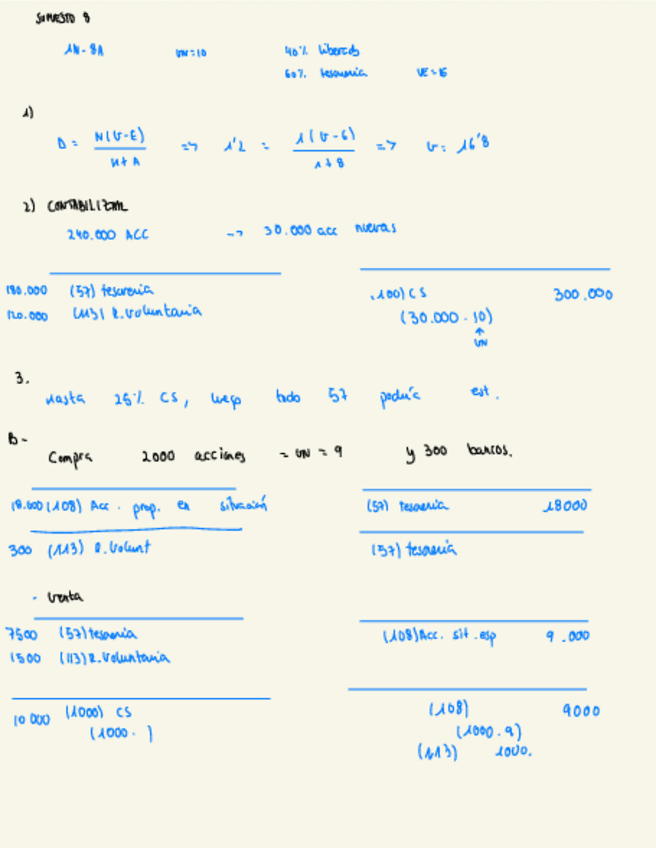 SUPUESTO 8
1N - 8A VN=10 40% liberada
60% tesorería VE=6
1)
D = N(V-E) / N+A => 1'2 = 1(V-6) / 1+8 => V= 16'8
2) CONTABILIZAR
240.000 ACC -> 30.000 acc nuevas
180.000 (57) tesorería
120.000 (113) R. Voluntaria
(100) CS 300.000
(30.000 · 10)
↑
VN
3.
Hasta 25% CS, luego todo 57 podría est.
B-
Compra 2000 acciones = VN = 9 y 300 bancos.
18.000 (108) Acc. prop. en situación (57) tesorería 18000
300 (113) R. Volunt (57) tesorería
- Venta
7500 (57) tesorería
1500 (113) R. Voluntaria
(108) Acc. sit. esp 9.000
10 000 (1000) CS
(1000 · )
(108) 9000
(1000.9)
(113) 1000.